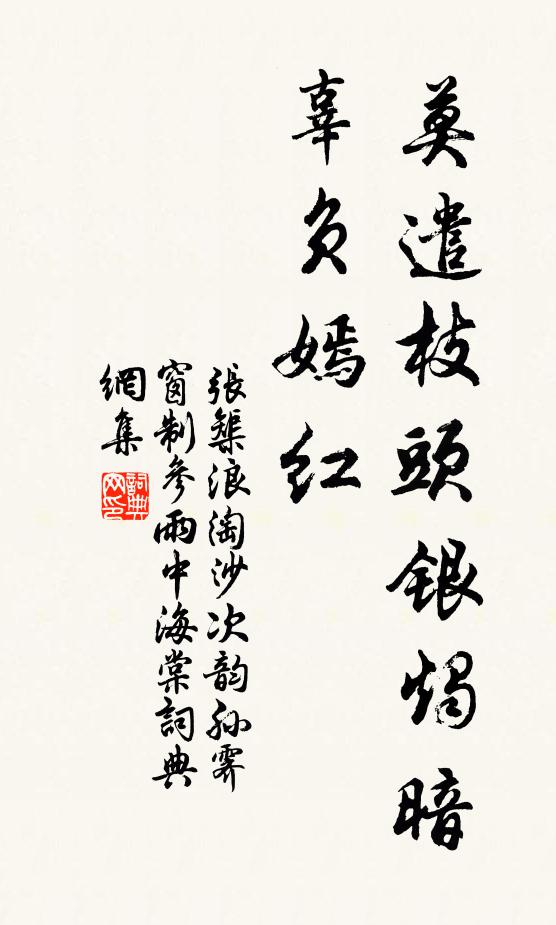 莫遣枝頭銀燭暗
辜負嫣紅
張榘浪淘沙次韵孫霽
窗制參雨中海棠詞典
網集
詞典
网印